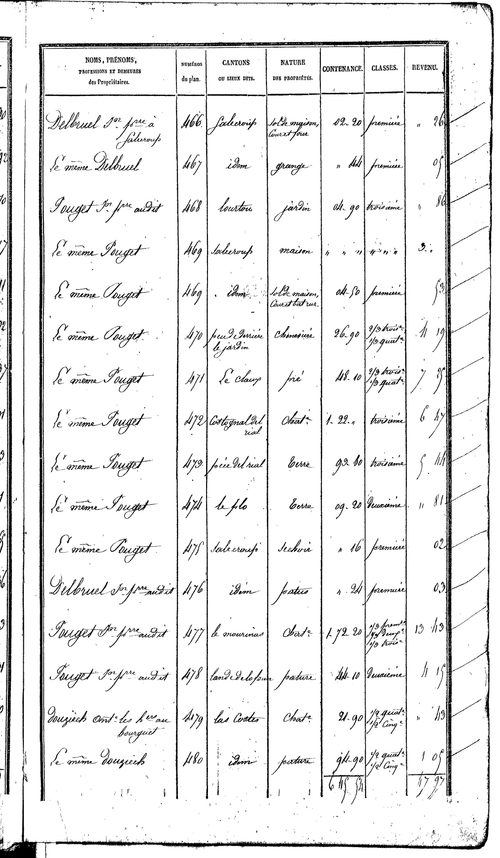 NOMS, PRÉNOMS, PROFESSIONS ET DEMEURES des Propriétaires. | NUMÉROS du plan. | CANTONS OU LIEUX DITS. | NATURE DES PROPRIÉTÉS. | CONTENANCE. | CLASSES. | REVENU.
Delbruel Jn pre à Salecroup 466 Salecroup sol de maison, Cour et four 02-20 première " 26
Le même Delbruel 467 idem grange " 44 première 05
Pouget Jn pre audit 468 jardin 04.90 troisième " 86
Le même Pouget 469 Salecroup maison " " " " " " 3 "
Le même Pouget 469 idem sol de maison, 04-50 première 53
Le même Pouget 470 derrière le jardin 26.90 2/3 trois. 1/3 quat. 4 19
Le même Pouget 471 Le Claux pré 48.10 2/3 trois. 1/3 quat. 7 35
Le même Pouget 472 Chat. 1-22 " troisième 6 47
Le même Pouget 473 pièce del rial Terre 93.80 troisième 5 44
Le même Pouget 474 le filo Terre 09-20 deuxième " 81
Le même Pouget 475 Salecroup Sechoir " 16 première 02
Delbruel Jn pre audit 476 idem patus " 24 première 03
Pouget Jn pre audit 477 Chat. 1-72-20 13 43
Pouget Jn pre audit 478 pature 44.10 deuxième 4 15
Douzieck Ant. les hers au bourguet 479 las Costes Chat. 21-90 1/2 quat. 1/2 Cinq. " 43
Le même Douzieck 480 idem pature 94-90 1/2 quat. 1/2 Cinq. 1 05
6 45 54 47 97